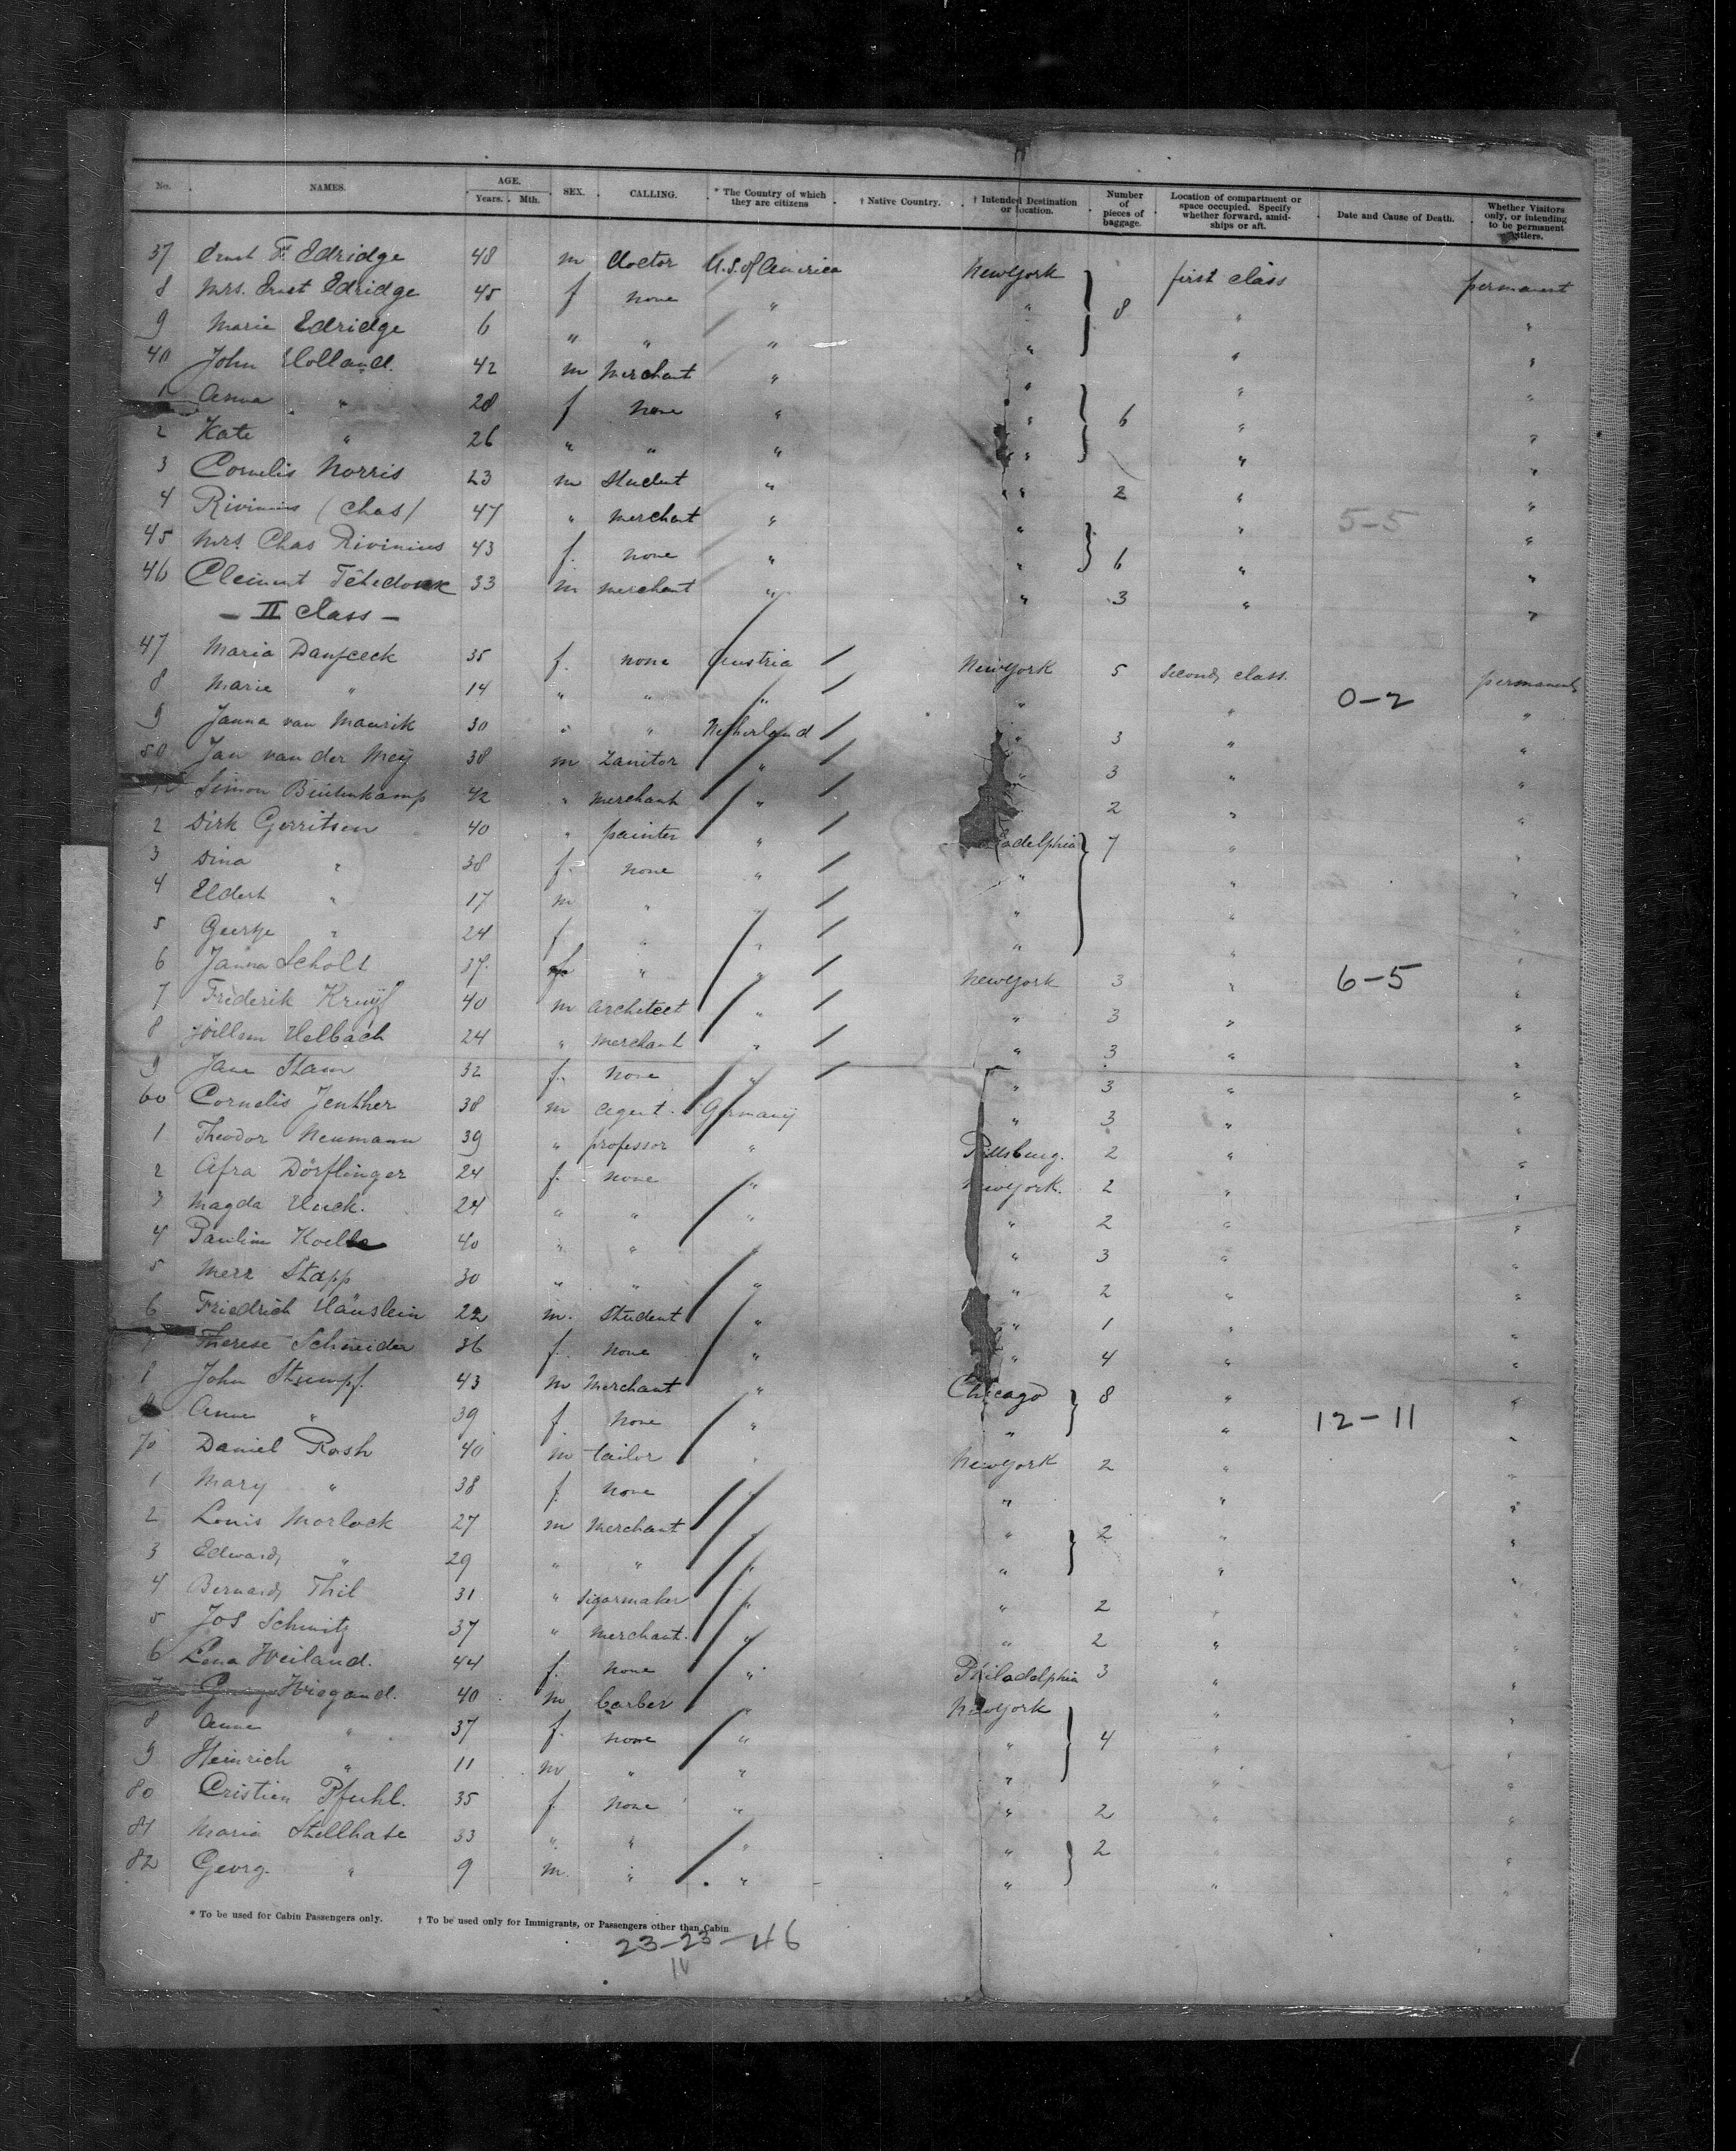 No. NAMES. AGE. SEX. CALLING. * The Country of which they are citizens † Native Country. † Intended Destination or location. Number of pieces of baggage. Location of compartment or space occupied. Specify whether forward, amidships or aft. Date and Cause of Death. Whether Visitors only, or intending to be permanent settlers.
Years. Mth.
37 Ernst F. Edridge 48 m doctor U.S. of America New York first class permanent
8 Mrs. Ernst Edridge 45 f none " " 8 " "
9 Marie Edridge 6 " " " " " "
40 John Holland. 42 m Merchant " " " "
1 Anna " 28 f none " " 6 " "
2 Kate " 26 " " " " " "
3 Cornelis Norris 23 m Student " " 2 " "
4 Rivinius (Chas) 47 " merchant " " " 5-5 "
45 Mrs. Chas Rivinius 43 f. none " " 6 " "
46 Clement 33 m merchant " " 3 " "
- II class -
47 Maria 35 f. none Austria New York 5 Second class. permanent
8 Marie " 14 " " " " " 0-2 "
9 Janna van Maurik 30 " " Netherland " 3 " "
50 Jan van der Meij 38 m Zanitor " " 3 " "
Simon 42 " merchant " 2 " "
2 Dirk Gerritsen 40 " painter " adelphia 7 " "
3 Dina " 38 f. none " " " "
4 Eldert " 17 m " " " " "
5 Geertje " 24 f " " " " "
6 Janna Scholt 37. f " " New York 3 " 6-5 "
7 Friderik Kruijf 40 m architect " " 3 " "
8 Willem Helbach 24 " merchant " " 3 " "
9 Jane Stam 32 f. none " " 3 " "
60 Cornelis Jenther 38 m agent. Germany " 3 " "
1 Theodor Neumann 39 " professor " Pittsburg. 2 " "
2 Afra Dörflinger 24 f. none " New York. 2 " "
3 Magda Huck. 24 " " " " 2 " "
4 Pauline 40 " " " " 3 " "
5 Merz Stapp 30 " " " " 2 " "
6 Friedrich Häuslein 22 m. Student " " 1 " "
7 Therese Schneider 36 f. none " " 4 " "
8 John Stumpf. 43 m Merchant " Chicago 8 " "
9 Anne " 39 f. none " " " 12-11 "
70 Daniel Rosh 40 m tailor " New York 2 " "
1 Mary " 38 f. none " " " "
2 Louis Morlock 27 m Merchant " " 2 " "
3 Edward " 29 " " " " " "
4 Bernard Thil 31 " Sigarmaker " " 2 " "
5 Jos Schmitz 37 " merchant. " " 2 " "
6 Lena Weiland. 44 f. none " Philadelphia 3 " "
7 Wiegand. 40 m barber " New York " "
8 Anne " 37 f. none " " 4 " "
9 Heinrich " 11 m " " " " "
80 Cristien Pfuhl. 35 f none " " 2 " "
81 Maria Stellhase 33 " " " " 2 " "
82 Georg. " 9 m. " " " " "
* To be used for Cabin Passengers only. † To be used only for Immigrants, or Passengers other than Cabin.
23-23-46